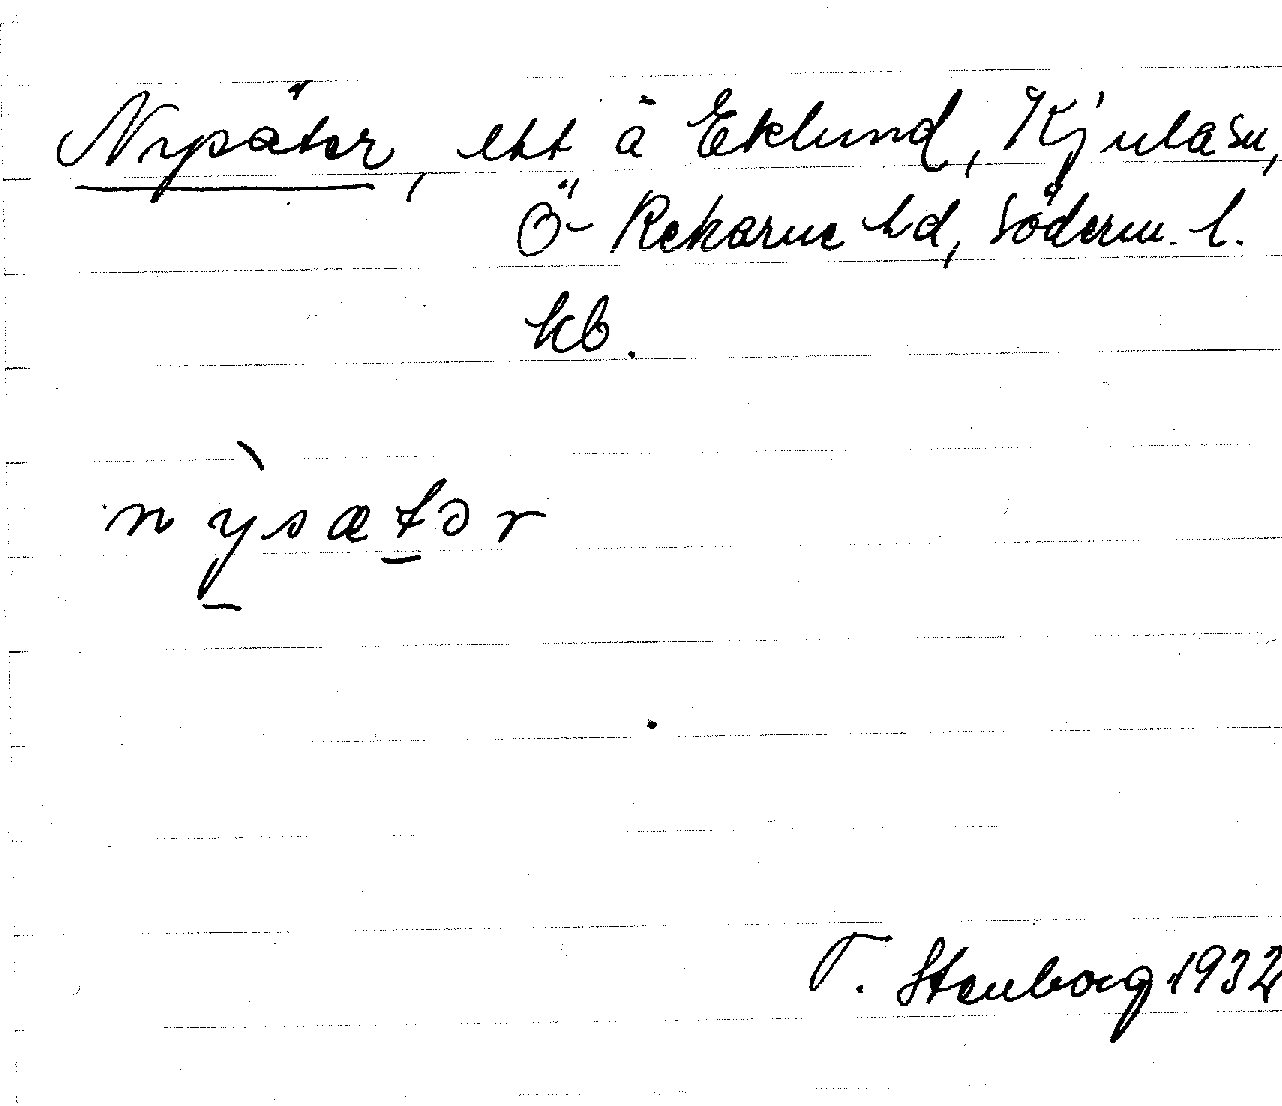 Nysäter, ett å Eklund, Kjula sn,
Ö- Rekarne hd, Söderm. l.
kb.
nỳ̠sæt̠ər
T. Stenborg 1932